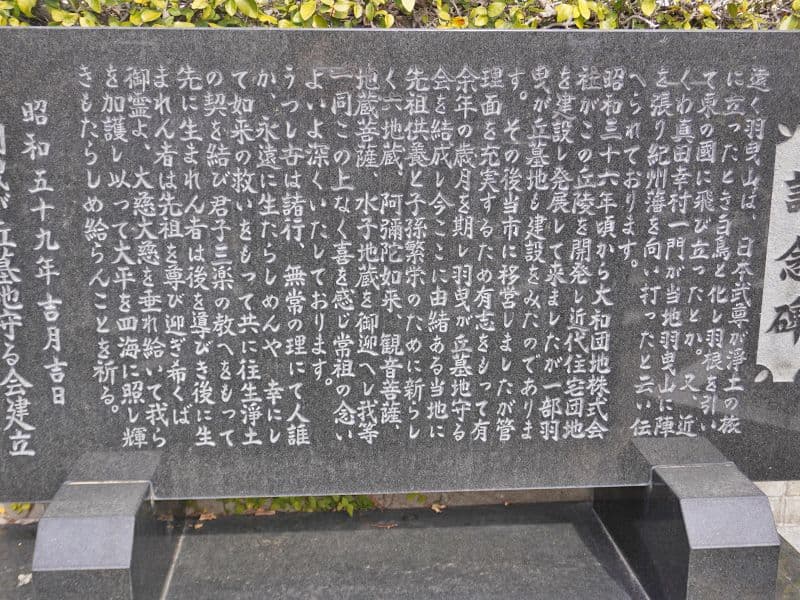 記念碑
遠く羽曳山は、日本武尊が浄土の旅
に立ったとき白鳥と化し羽根を引い
て東の國に飛び立ったとか。又、近
くわ真田幸村一門が当地羽曳山に陣
を張り紀州藩を向い打ったと云い伝
へられております。
昭和三十六年頃から大和団地株式会
社がこの丘陵を開発し近代住宅団地
を建設し発展して来ましたが一部羽
曳が丘墓地も建設をみたのでありま
す。その後当市に移営しましたが管
理面を充実するため有志をもって有
余年の歳月を期し羽曳が丘墓地守る
会を結成し今ここに由緒ある当地に
先祖供養と子孫繁栄のために新らし
く六地蔵、阿彌陀如来、観音菩薩、
地蔵菩薩、水子地蔵を御迎へし我等
一同この上なく喜を感じ常祖の念い
よいよ深くいたしております。
うつし世は諸行、無常の理にて人誰
か、永遠に生たらしめんや 幸にし
て如来の救いをもって共に往生浄土
の契を結び君子三楽の教へをもって
先に生まれん者は後を導びき後に生
まれん者は先祖を尊び迎ぎ希くば
御霊よ、大慈大慈を垂れ給いて我ら
を加護し以って大平を四海に照し輝
きもたらしめ給らんことを祈る。
昭和五十九年吉月吉日
羽曳が丘墓地守る会建立